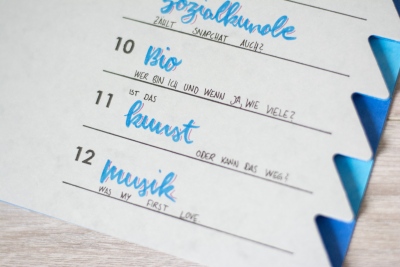 Sozialkunde
ZÄHLT SNAPCHAT AUCH?
10 Bio
WER BIN ICH UND WENN JA, WIE VIELE?
IST DAS
11 kunst
ODER KANN DAS WEG?
12 musik
WAS MY FIRST LOVE